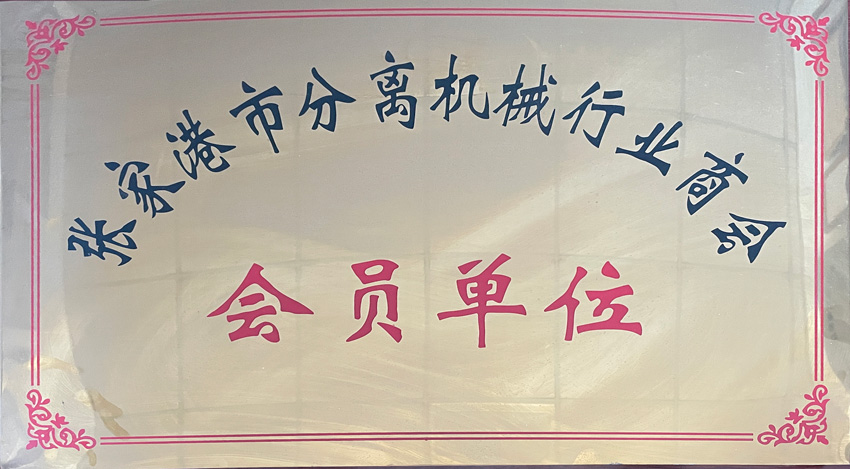 张家港市分离机械行业商会
会员单位